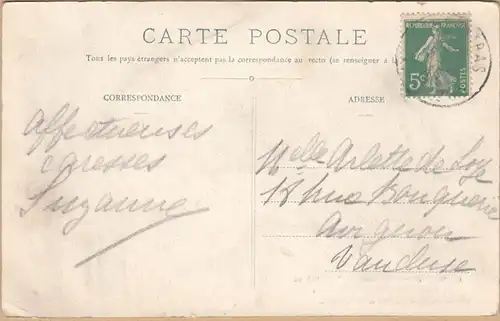 CARTE POSTALE
Tous les pays étrangers n'acceptent pas la correspondance au recto (se renseigner à l
CORRESPONDANCE
ADRESSE
REPUBLIQUE FRANÇAISE
5c
POSTES
RAS
affectueuses
caresses
Suzanne
Melle Arlette de Loye
18 rue Bouquerie
Avignon
Vaucluse